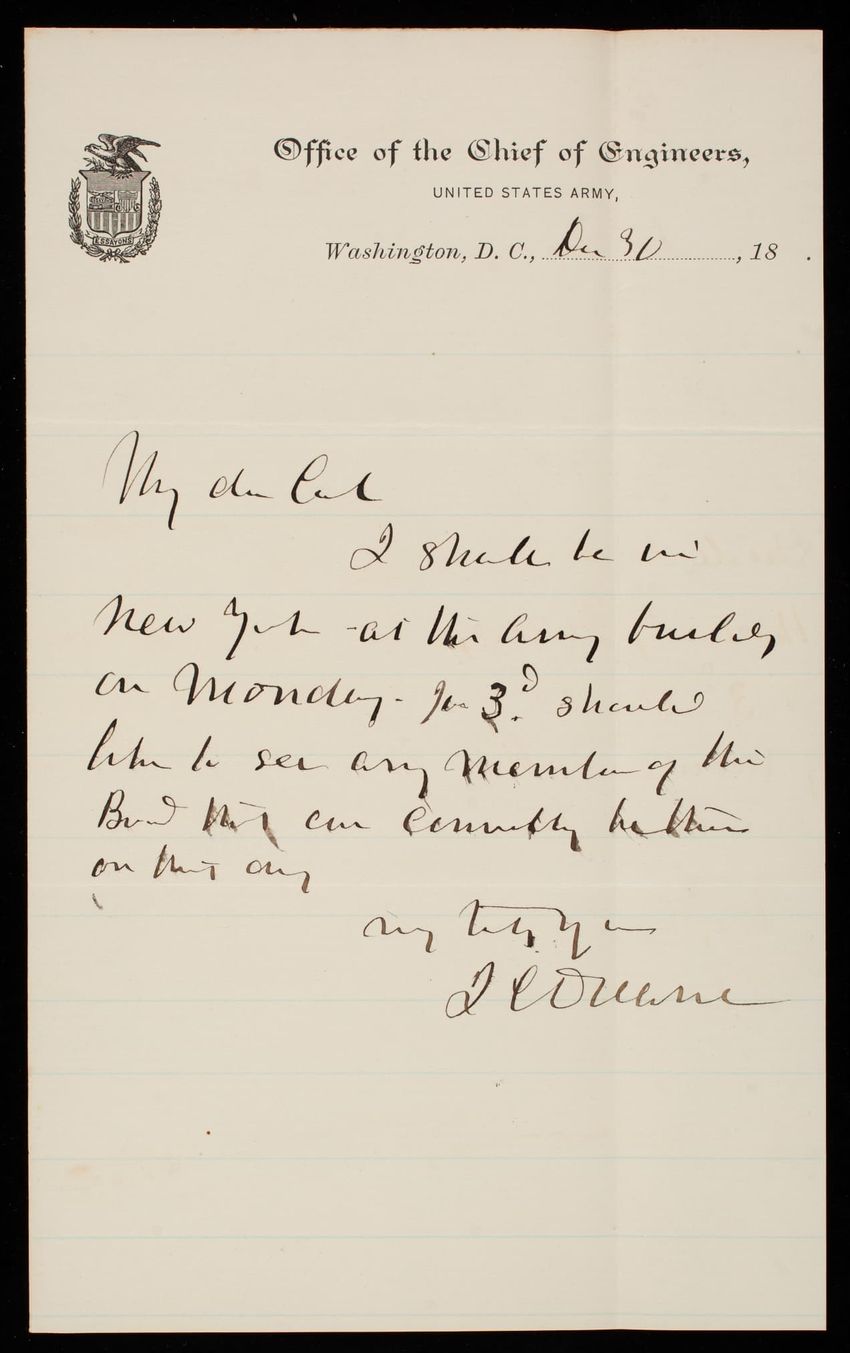 Office of the Chief of Engineers,
UNITED STATES ARMY,
ESSAYONS
Washington, D. C., Dec 30, 18 .
My dear Col
I shall be in
New York - at the Army building
on Monday - Jan 3d. should
like to see any member of the
Board that can conveniently be there
on that day
very truly yours
J C Duane